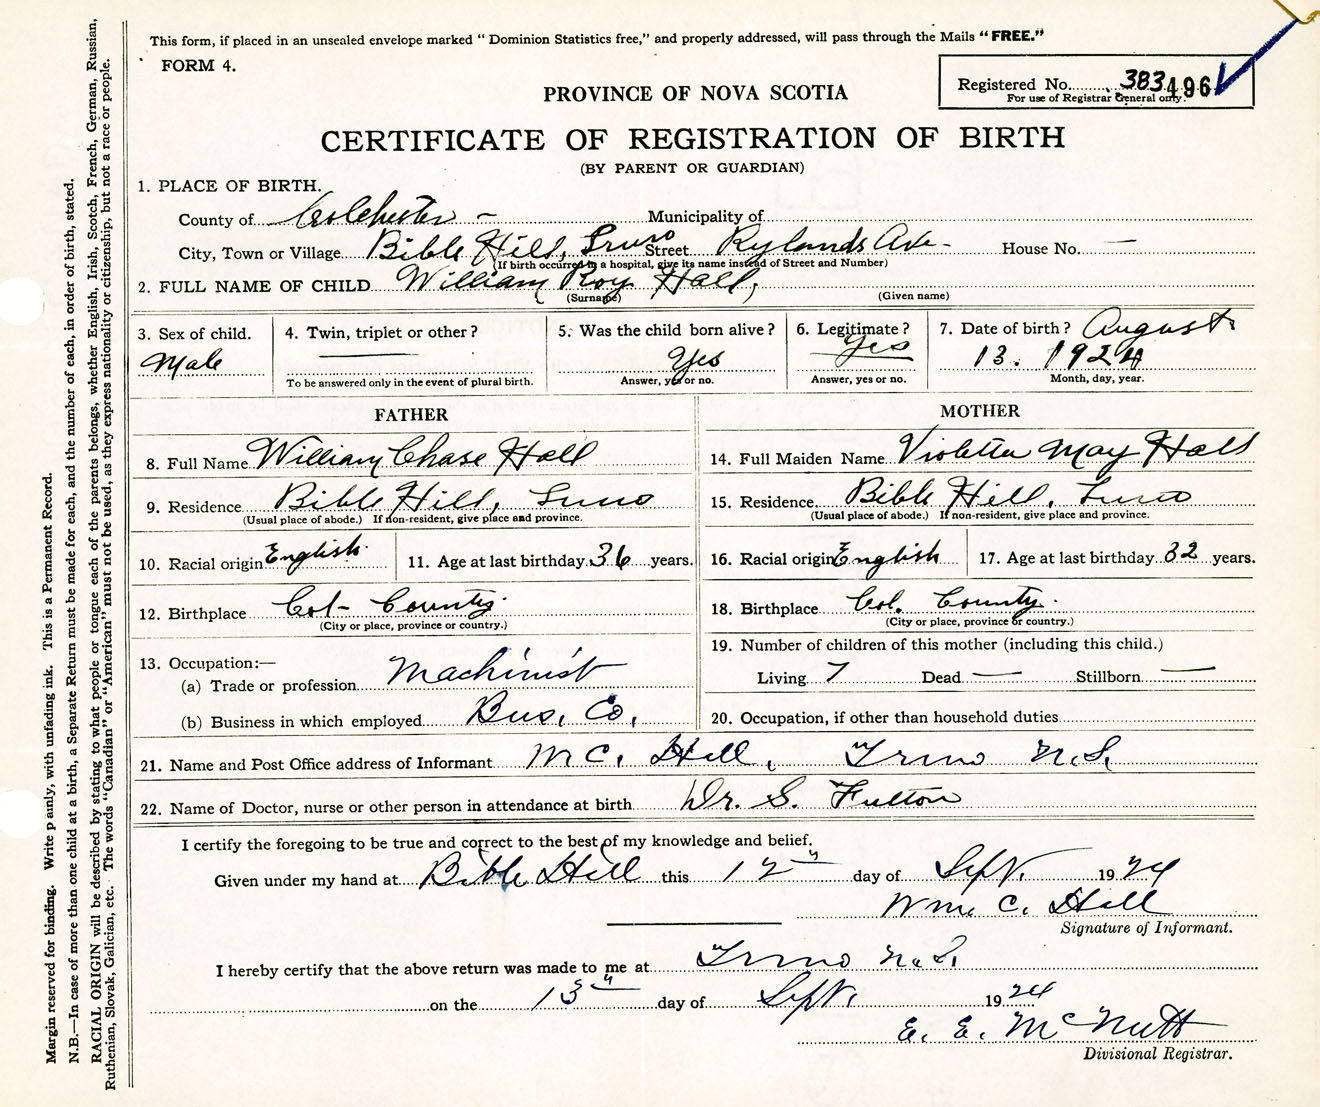 This form, if placed in an unsealed envelope marked “ Dominion Statistics free,” and properly addressed, will pass through the Mails “ FREE.”
FORM 4.
Registered No. 383 496
For use of Registrar General only.
PROVINCE OF NOVA SCOTIA
CERTIFICATE OF REGISTRATION OF BIRTH
(BY PARENT OR GUARDIAN)
1. PLACE OF BIRTH.
County of Colchester – Municipality of
City, Town or Village Bible Hill, Truro Street Rylands Ave- House No. —
(If birth occurred in a hospital, give its name instead of Street and Number)
2. FULL NAME OF CHILD William Roy Hall,
(Surname) (Given name)
3. Sex of child. 4. Twin, triplet or other? 5. Was the child born alive? 6. Legitimate? 7. Date of birth? August
Male — Yes Yes 13. 1924
To be answered only in the event of plural birth. Answer, yes or no. Answer, yes or no. Month, day, year.
FATHER MOTHER
8. Full Name William Chase Hall 14. Full Maiden Name Violetta May Hall
9. Residence Bible Hill, Truro 15. Residence Bible Hill, Truro
(Usual place of abode.) If non-resident, give place and province. (Usual place of abode.) If non-resident, give place and province.
10. Racial origin English 11. Age at last birthday 36 years. 16. Racial origin English 17. Age at last birthday 32 years.
12. Birthplace Col- County. 18. Birthplace Col. County.
(City or place, province or country.) (City or place, province or country.)
13. Occupation:— 19. Number of children of this mother (including this child.)
(a) Trade or profession Machinist Living 7 Dead — Stillborn —
(b) Business in which employed Bus. Co. 20. Occupation, if other than household duties
21. Name and Post Office address of Informant M C. Hall, Truro N.S.
22. Name of Doctor, nurse or other person in attendance at birth Dr. S. Fulton
I certify the foregoing to be true and correct to the best of my knowledge and belief.
Given under my hand at Bible Hill this 12 day of Sept. 1924
Wm. C. Hall
Signature of Informant.
I hereby certify that the above return was made to me at Truro N.S.
on the 13 day of Sept. 1924
E. E. McNutt
Divisional Registrar.
Margin reserved for binding. Write p anly, with unfading ink. This is a Permanent Record.
N.B.—In case of more than one child at a birth, a Separate Return must be made for each, and the number of each, in order of birth, stated.
RACIAL ORIGIN will be described by stating to what people or tongue each of the parents belongs, whether English, Irish, Scotch, French, German, Russian,
Ruthenian, Slovak, Galician, etc. The words “Canadian” or “American” must not be used, as they express nationality or citizenship, but not a race or people.